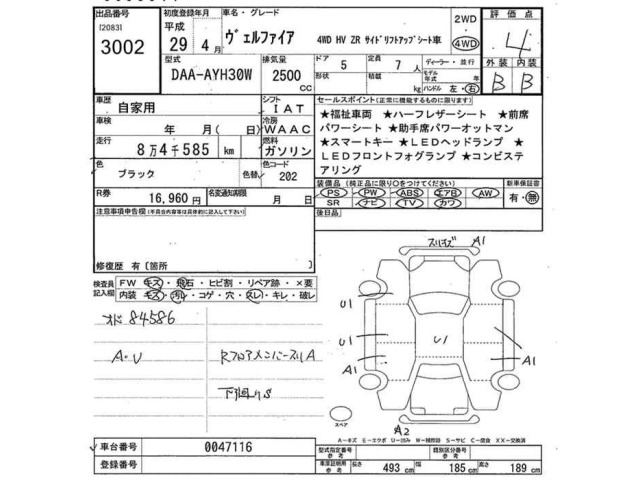 出品番号
初度登録年月
車名・グレード
評価点
[20831
平成
3002
29年 4月
ヴェルファイア
4WD HV ZR サイドリフトアップシート車
2WD
4WD
4
型式
排気量
ドア 5
定員 7人
ディーラー・並行
外装 内装
DAA-AYH30W
2500 CC
形状
積載 kg
モデル年式 年
ハンドル 左・右
B B
車歴
自家用
シフト
IAT
セールスポイント(正常に機能するものに限ります)
車検
年 月( )
冷房
WAAC
★福祉車両 ★ハーフレザーシート ★前席
パワーシート ★助手席パワーオットマン
走行
8万4千585 km
燃料
ガソリン
★スマートキー ★LEDヘッドランプ ★
LEDフロントフォグランプ ★コンビステ
アリング
色
ブラック
色替
色コード
202
R券
16,960円
名変通知期限
月 日
装備品(純正品に限り○をつけてください)
新車保証書
PS PW ABS エアB AW
有・無
SR ナビ TV カワ
注意事項申告欄
後日品
修復歴 有[箇所
検査員記入欄
FW キズ・飛石・ヒビ割・リペア跡・×要
内装 キズ・汚れ・コゲ・穴・スレ・キレ・破レ
オド84586
A・U
RフロアメンバーズリA
下廻りS
スリキズ A1
U1
U1
A1
U1
A1
A2
スペア
A－キズ E－エクボ U－凹み W－補修跡 S－サビ C－腐食 XX－交換済
車台番号
0047116
型式指定番号 参考
類別区分番号 参考
登録番号
車庫証明用 参考
長さ 493 cm
幅 185 cm
高さ 189 cm